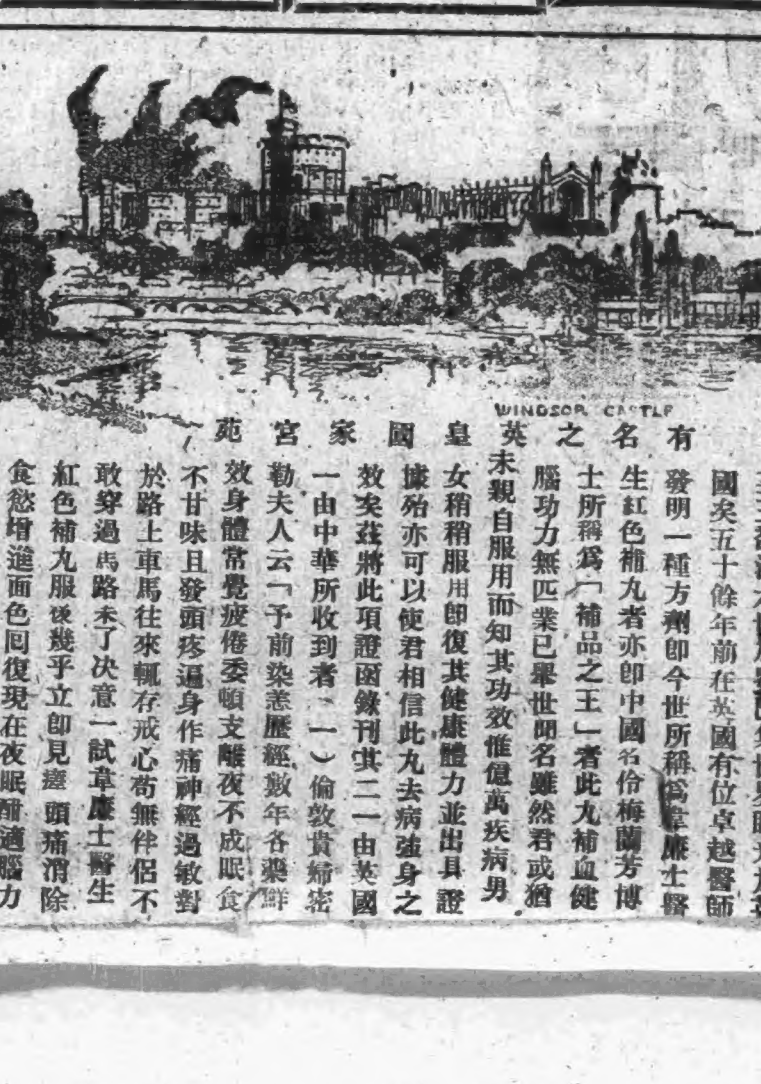 WINDSOR CASTLE
有名之英皇國家宮苑
國矣五十餘年前在英國有位卓越醫師
發明一種方劑卽今世所稱爲韋廉士醫
生紅色補丸者亦卽中國名伶梅蘭芳博
士所稱爲「補品之王」者此丸補血健
腦功力無匹業已舉世聞名雖然君或猶
未親自服用而知其功效惟億萬疾病男
女稍稍服用卽復其健康體力並出具證
據殆亦可以使君相信此丸去病強身之
效矣茲將此項證函錄刊其二一由英國
一由中華所收到者（一）倫敦貴婦密
勒夫人云「予前染恙歷經數年各藥鮮
效身體常覺疲倦委頓支離夜不成眠食
不甘味且發頭疼遍身作痛神經過敏對
於路上車馬往來輒存戒心苟無伴侶不
敢穿過馬路未了决意一試韋廉士醫生
紅色補丸服後幾乎立卽見痊頭痛消除
食慾增進面色囘復現在夜眠酣適腦力